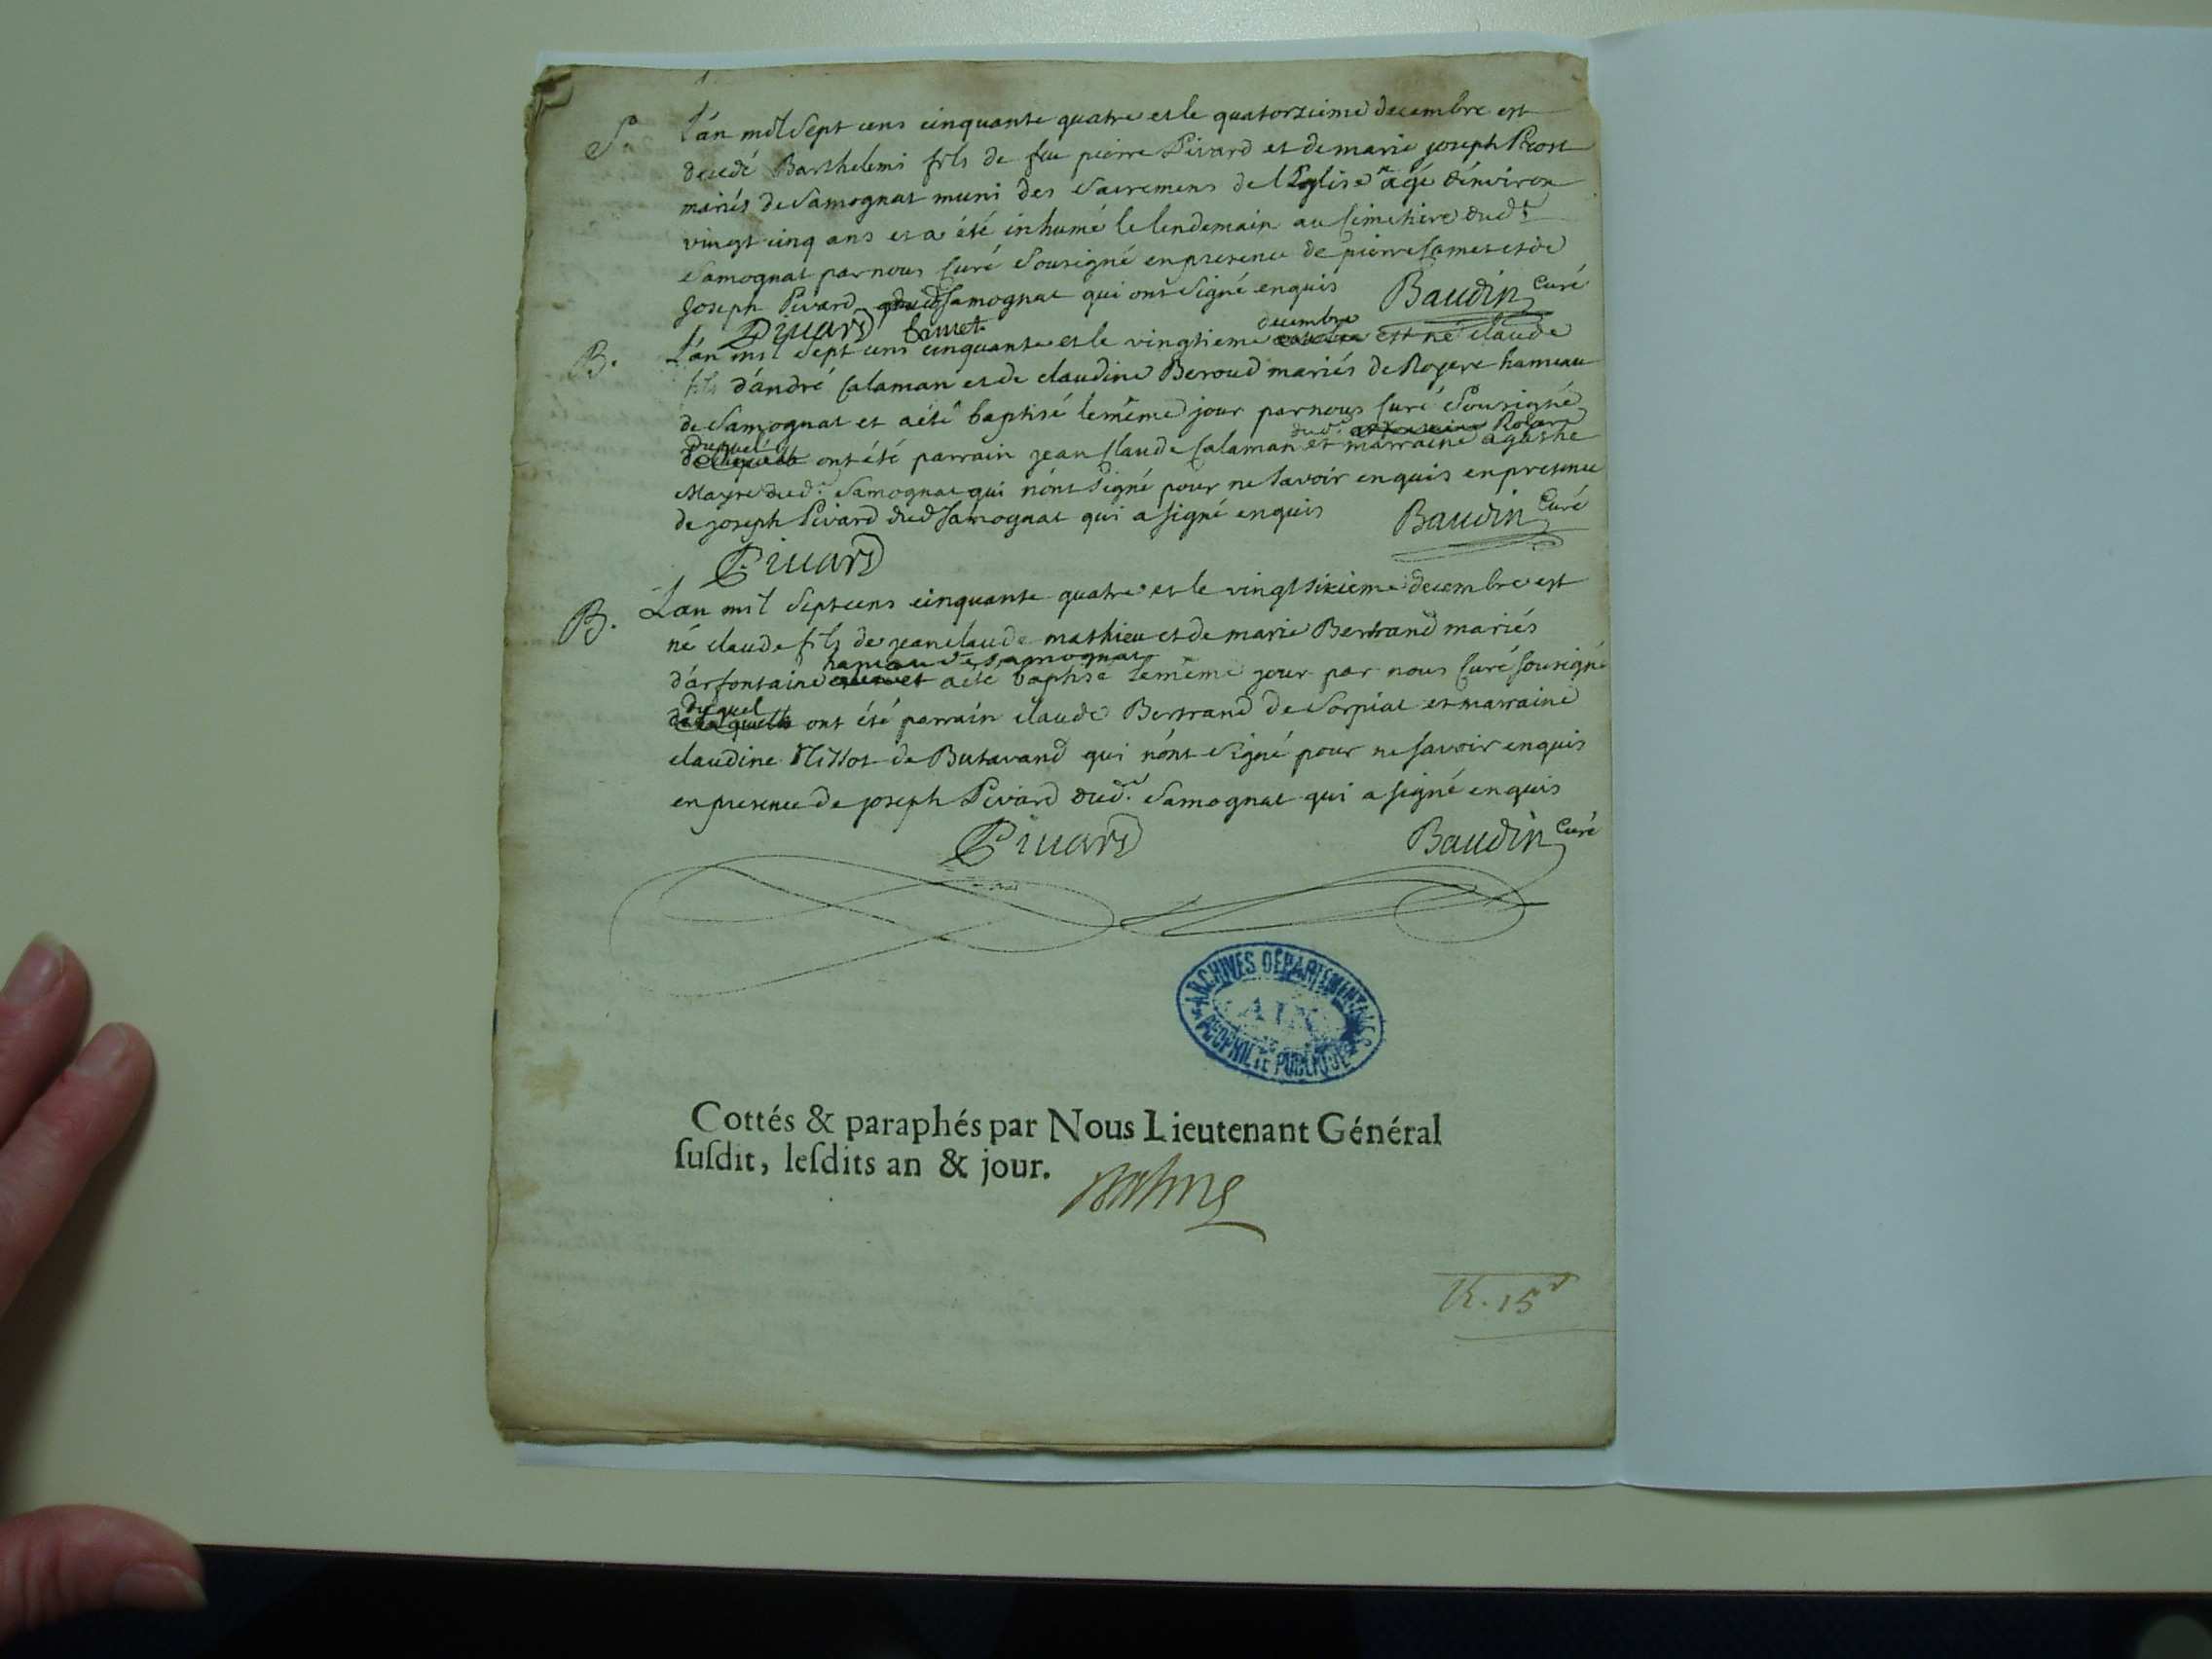 S. L'an mil sept cens cinquante quatre et le quatorzieme decembre est
decedé Barthelemi fils de feu pierre Pivard et de marie joseph Prost
mariés de Samognat muni des Sacremens de l'Eglise agé d'environ
vingt cinq ans et a été inhumé le lendemain au Cimetiere dud.t
Samognat par nous Curé Sousigné en presence de pierre Camet et de
Joseph Pivard dud Samognat qui ont signé enquis Baudin Curé
Pivard Camet
decembre
B. L'an mil sept cens cinquante et le vingtieme est né claude
fils d'andré Calaman et de claudine Beroud mariés de Rogere hameau
de Samognat et a été baptisé le même jour par nous Curé Sousigné
duquel
ont été parrain jean Claude Calaman dud. et marraine agathe
Mayre dud. Samognat qui n'ont signé pour ne savoir enquis en presence
de joseph Pivard dud Samognat qui a signé enquis Baudin Curé
Pivard
B. L'an mil sept cens cinquante quatre et le vingt sixieme decembre est
né claude fils de jean claude mathieu et de marie Bertrand mariés
hameau de Samognat
d'arfontaine et a été baptisé le même jour par nous Curé Sousigné
duquel
ont été parrain claude Bertrand de Sorpiat et marraine
claudine de Butavand qui n'ont signé pour ne savoir enquis
en presence de joseph Pivard dud. Samognat qui a signé enquis
Pivard Baudin Curé
ARCHIVES DÉPARTEMENTALES
AIN
PROPRIÉTÉ PUBLIQUE
Cottés & paraphés par Nous Lieutenant Général
ſuſdit, leſdits an & jour.